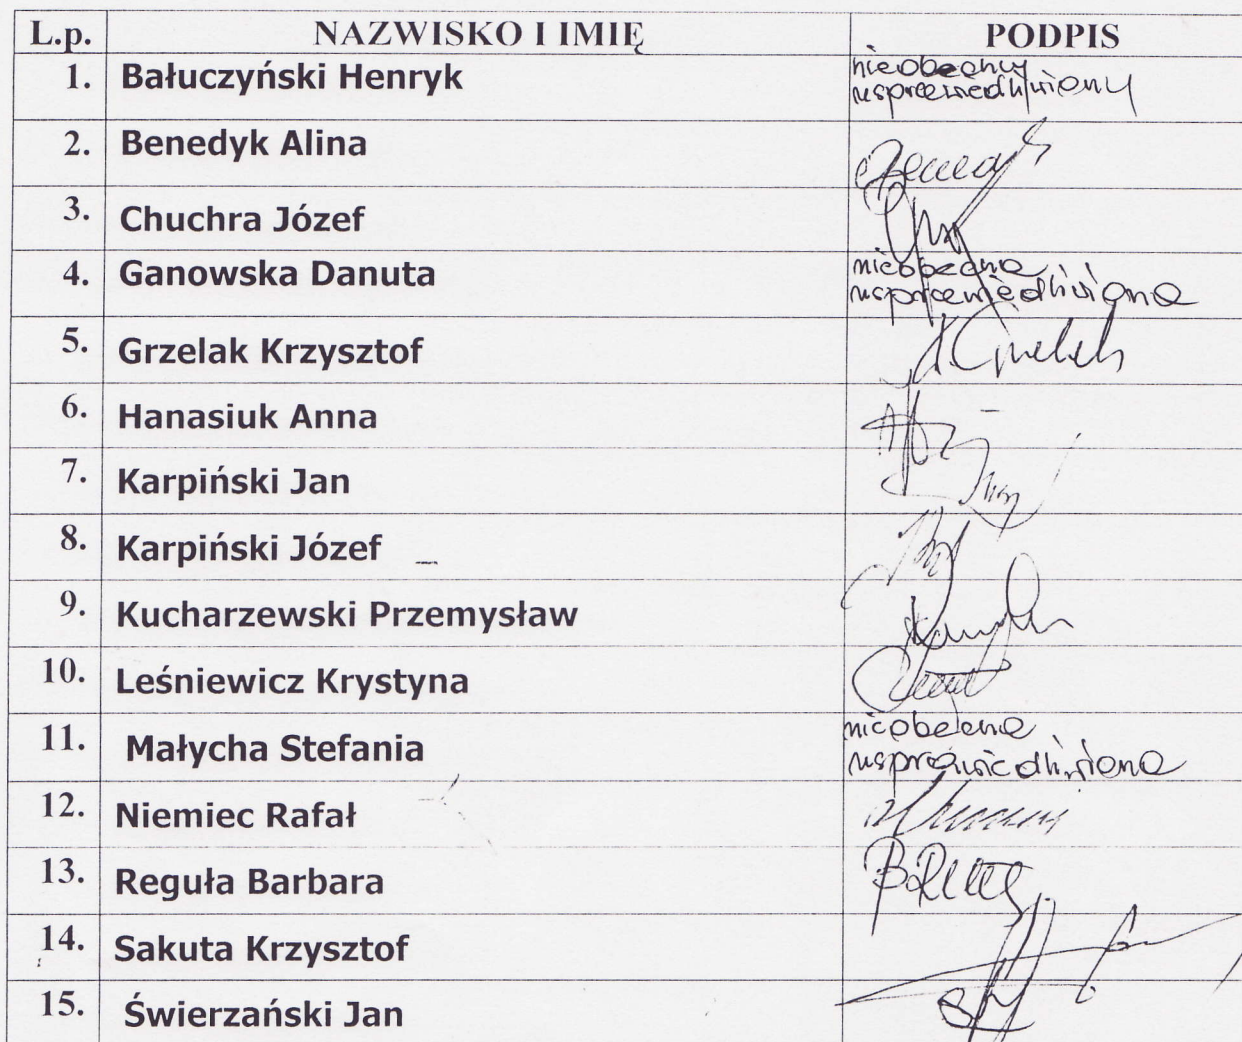 L.p. NAZWISKO I IMIĘ PODPIS
1. Bałuczyński Henryk nieobecny
usprawiedliwiony
2. Benedyk Alina
3. Chuchra Józef
4. Ganowska Danuta nieobecna
usprawiedliwiona
5. Grzelak Krzysztof
6. Hanasiuk Anna
7. Karpiński Jan
8. Karpiński Józef
9. Kucharzewski Przemysław
10. Leśniewicz Krystyna
11. Małycha Stefania nieobecna
usprawiedliwiona
12. Niemiec Rafał
13. Reguła Barbara
14. Sakuta Krzysztof
15. Świerzański Jan